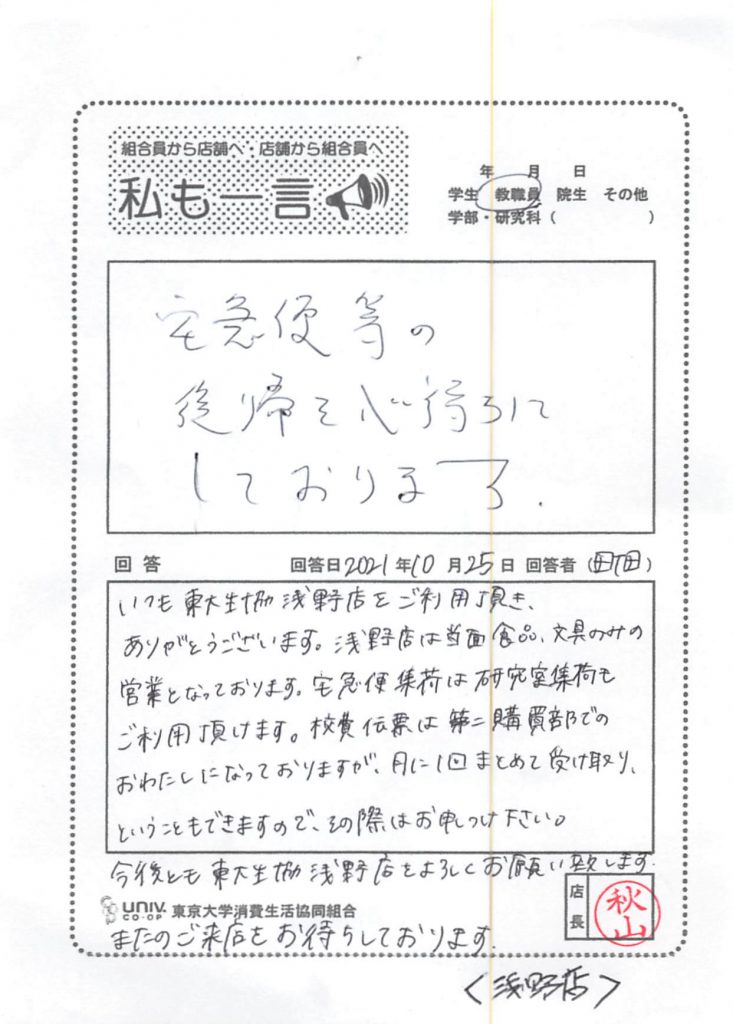 組合員から店舗へ・店舗から組合員へ
私も一言
年 月 日
学生 教職員 院生 その他
学部・研究科( )
宅急便等の
復帰を心待ちに
しております.
回答 回答日2021年10月25日 回答者( )
いつも東大生協浅野店をご利用頂き、
ありがとうございます。浅野店は当面食品、文具のみの
営業となっております。宅急便集荷は研究室集荷も
ご利用頂けます。校費伝票は第二購買部での
おわたしになっておりますが、月に1回まとめて受け取り、
ということもできますので、その際はお申しつけ下さい。
今後とも東大生協浅野店をよろしくお願い致します.
店長
秋山
UNIV. CO-OP 東京大学消費生活協同組合
またのご来店をお待ちしております.
<浅野店>